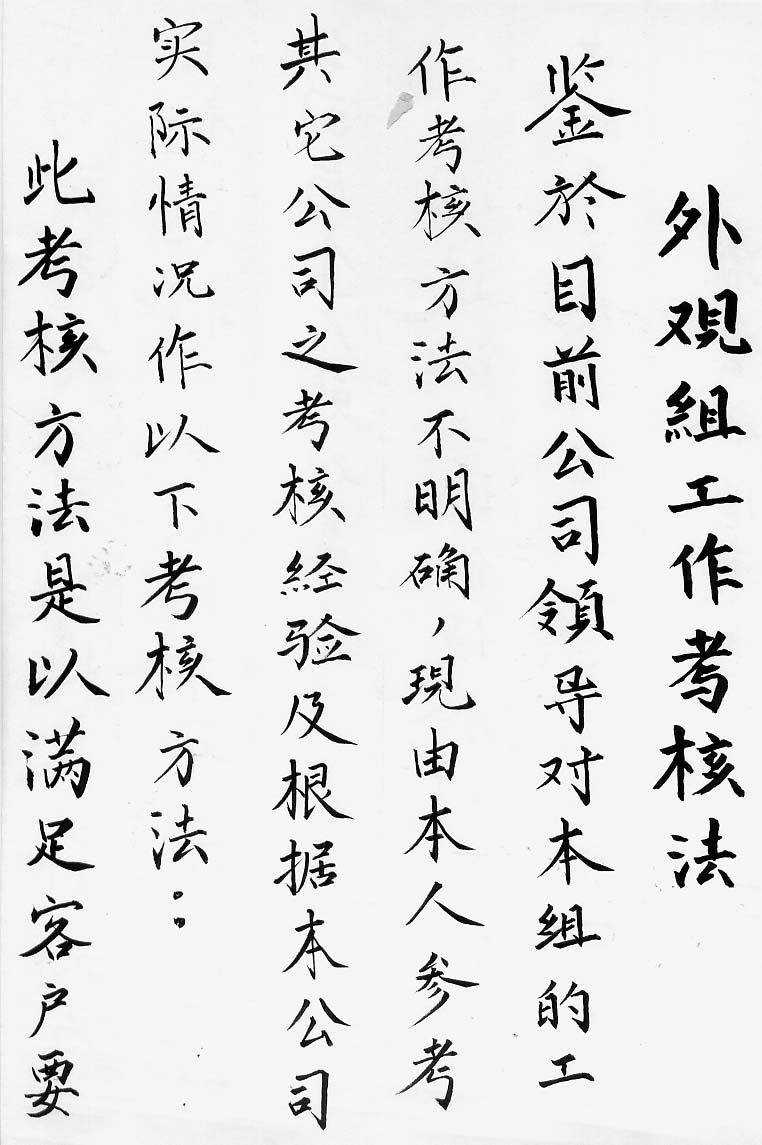 外观組工作考核法
鉴於目前公司領导对本組的工
作考核方法不明确，現由本人参考
其它公司之考核経验及根据本公司
实际情况作以下考核方法：
此考核方法是以满足客户要